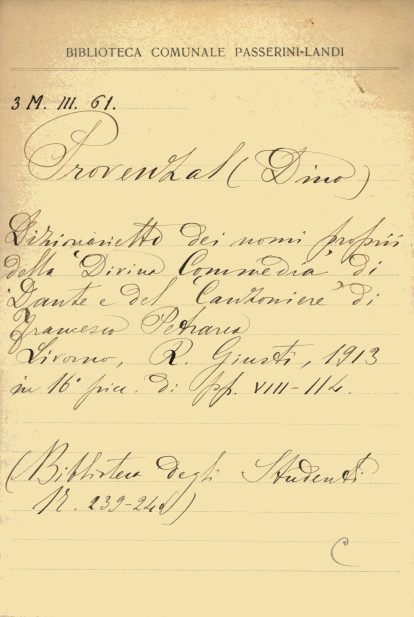 BIBLIOTECA COMUNALE PASSERINI-LANDI
3 M. III. 61.
Provenzal (Dino)
Dizionarietto dei nomi proprii
della "Divina Commedia" di
Dante e del "Canzoniere" di
Francesco Petrarca
Livorno, R. Giusti, 1913
in 16° picc. di pp. VIII-114.
(Biblioteca degli Studenti
N. 239-240)
C